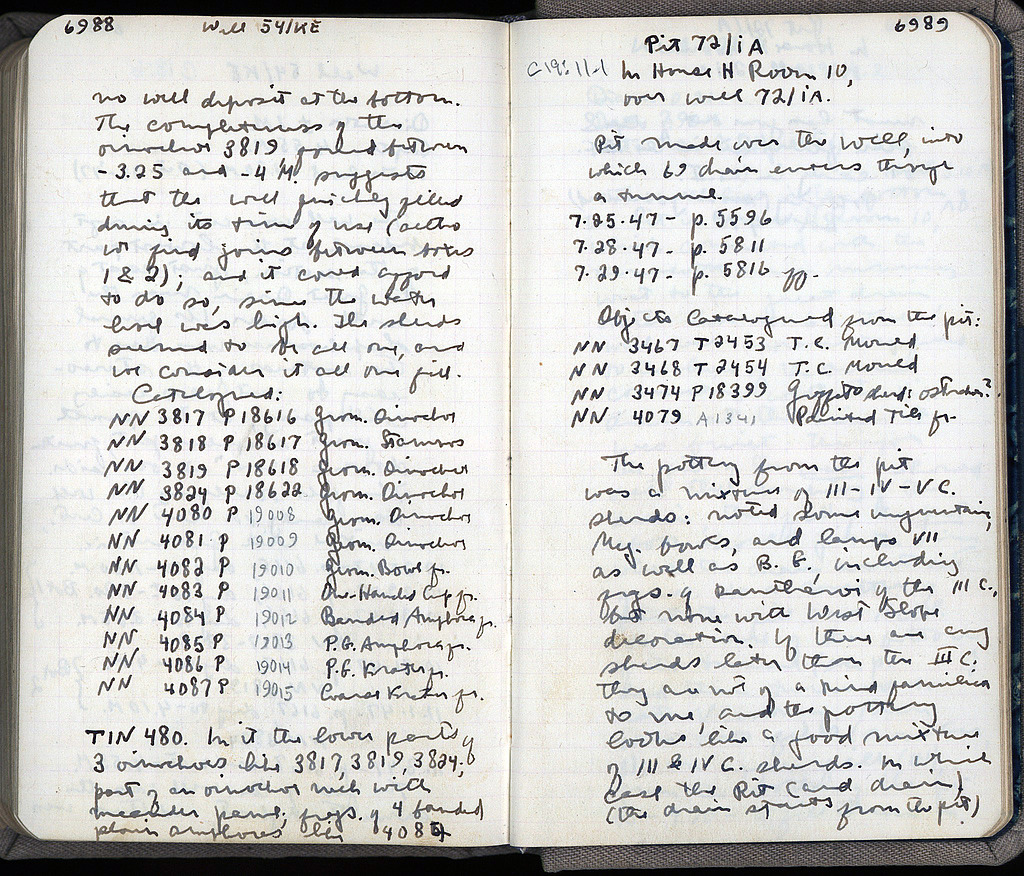 6988
Well 54/KE
no well deposit at the bottom.
The completeness of the
oinochoe 3819, found between
-3.25 and -4 M. suggests
that the well quickly filled
during its time of use (altho
we find joins between boxes
1 & 2); and it could afford
to do so, since the water
level was high. The sherds
seemed to be all one, and
we consider it all one fill.
Catalogued:
NN 3817 P 18616 Geom. Oinochoe
NN 3818 P 18617 Geom. Stamnos
NN 3819 P 18618 Geom. Oinochoe
NN 3824 P 18622 Geom. Oinochoe
NN 4080 P 19008 Geom. Oinochoe
NN 4081 P 19009 Geom. Oinochoe
NN 4082 P 19010 Geom. Bowl fr.
NN 4083 P 19011 One-Handled Cup fr.
NN 4084 P 19012 Banded Amphora fr.
NN 4085 P 19013 P.G. Amphora fr.
NN 4086 P 19014 P.G. Krater fr.
NN 4087 P 19015 Coarse Krater fr.
TIN 480. In it the lower parts of
3 oinochoes like 3817, 3819, 3824,
part of an oinochoe neck with
meander panel, frags. of 4 banded
plain amphoras like 4084
6989
Pit 72/ΙΑ
In House H Room 10,
over well 72/ΙΑ.
Pit made over the well, into
which 69 drain enters through
a tunnel.
7.25.47 - p. 5596
7.28.47 - p. 5811
7.29.47 - p. 5816 ff.
Objects Catalogued from the pit:
NN 3467 T 2453 T.C. Mould
NN 3468 T 2454 T.C. Mould
NN 3474 P 18399 Graffito sherd: ostrakon?
NN 4079 A 1341 Painted Tile fr.
The pottery from the pit
was a mixture of III-IV-V C.
sherds: noted some
Meg. bowls, and lamps VII
as well as B.G. including
frags. of kantharoi of the III C.,
but none with West Slope
decoration. If there are any
sherds later than the III C.
they are not of a kind familiar
to me, and the pottery
looks like a good mixture
of III & IV C. sherds. In which
case the Pit (and drain)
(the drain starts from the pit)